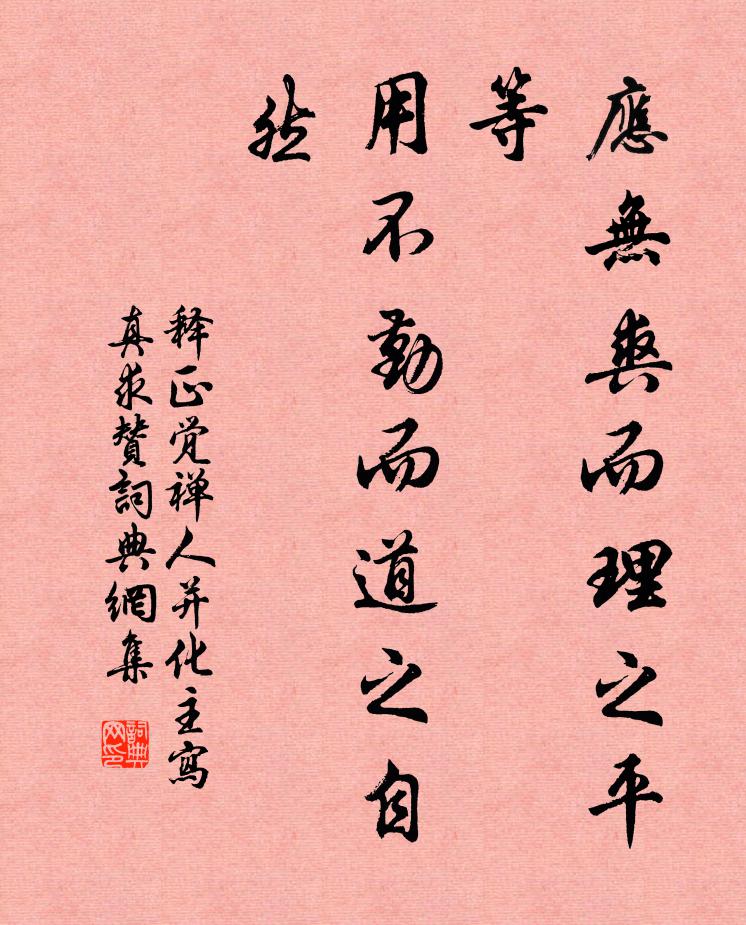 應無爽而理之平
等
用不勤而道之自
然
释正觉禅人并化主寫
真求贊詞典網集
詞典
网印